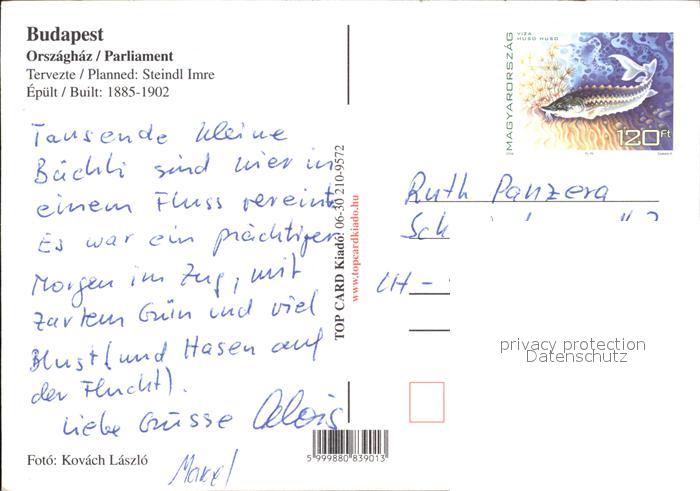 Budapest
Országház / Parliament
Tervezte / Planned: Steindl Imre
Épült / Built: 1885-1902
Tausende kleine
Bächli sind hier in
einem Fluss vereint
Es war ein prächtiger
Morgen im Zug, mit
zartem Grün und viel
Blust (und Hasen auf
der Flucht).
Liebe Grüsse Alois
Fotó: Kovách László
TOP CARD Kiadó: 06-30 210-9572
www.topcardkiado.hu
5 999880 839013
MAGYARORSZÁG
VIZA
HUSO HUSO
120Ft
Ruth Panzera
Sch
CH -
privacy protection
Datenschutz